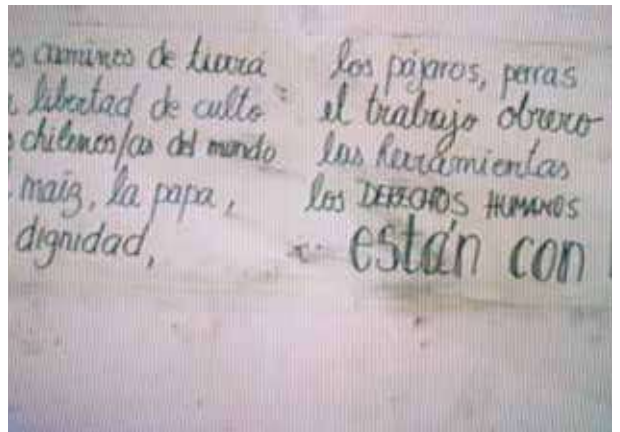 caminos de tierra
libertad de culto
chilenos/as del mundo
maíz, la papa,
dignidad,
los pájaros, perras
el trabajo obrero
las herramientas
los DERECHOS HUMANOS
están con